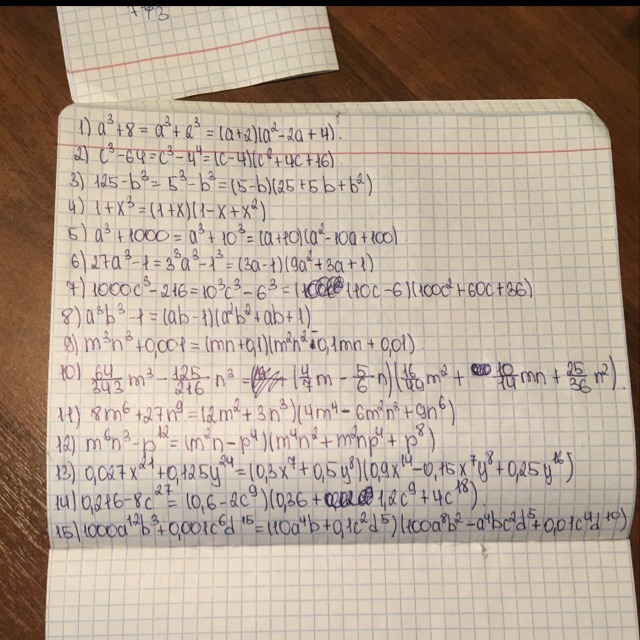 1) a³+8 = a³+2³ = (a+2)(a²-2a+4).
2) c³-64=c³-4⁴=(c-4)(c²+4c+16)
3) 125-b³=5³-b³=(5-b)(25+5b+b²)
4) 1+x³=(1+x)(1-x+x²)
5) a³+1000=a³+10³=(a+10)(a²-10a+100)
6) 27a³-1=3³a³-1³=(3a-1)(9a²+3a+1)
7) 1000c³-216=10³c³-6³=(10c-6)(100c²+60c+36)
8) a³b³-1=(ab-1)(a²b²+ab+1)
9) m³n³+0,001=(mn+0,1)(m²n²-0,1mn+0,01)
10) 64/343 m³ - 125/216 n³ = (4/7 m - 5/6 n)(16/49 m² + 10/14 mn + 25/36 n²).
11) 8m⁶+27n⁹=(2m²+3n³)(4m⁴-6m²n³+9n⁶)
12) m⁶n³-p¹²=(m²n-p⁴)(m⁴n²+m²np⁴+p⁸)
13) 0,027x²¹+0,125y²⁴=(0,3x⁷+0,5y⁸)(0,9x¹⁴-0,15x⁷y⁸+0,25y¹⁶)
14) 0,216-8c²⁷=(0,6-2c⁹)(0,36+1,2c⁹+4c¹⁸)
15) 1000a¹²b³+0,001c⁶d¹⁵=(10a⁴b+0,1c²d⁵)(100a⁸b²-a⁴bc²d⁵+0,01c⁴d¹⁰)